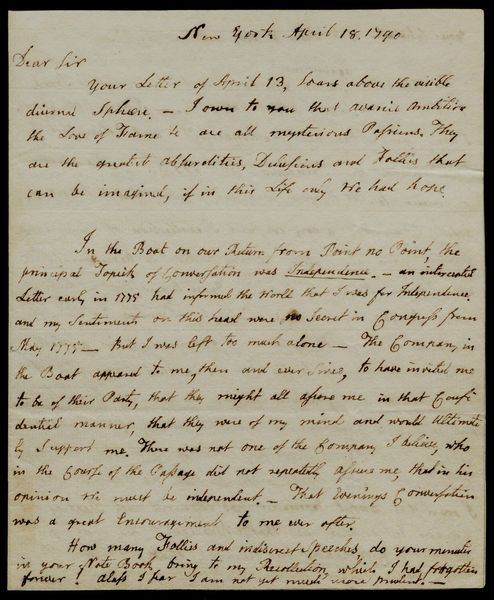 New York April 18. 1790
Dear Sir
Your Letter of April 13, soars above the visible
diurnal Sphere. — I own to you that avarice Ambition
the Love of Fame &c are all mysterious Passions. They
are the greatest Absurdities, Delusions and Follies that
can be imagined, if in this Life only We had hope.
In the Boat on our Return from Point no Point, the
principal Topick of Conversation was Independence. — an intercepted
Letter early in 1775 had informed the World that I was for Independence.
and my Sentiments on this head were no Secret in Congress from
May 1775 — But I was left too much alone — The Company in
the Boat appeared to me, then and ever Since, to have invited me
to be of their Party, that they might all assure me in that Confi
dential manner, that they were of my mind and would Ultimate
ly Support me. There was not one of the Company I believe, who
in the Course of the Passage did not repeatedly assure me, that in his
opinion We must be independent. — That Evenings Conversation
was a great Encouragement to me, ever after.
How many Follies and indiscreet Speeches, do your minutes
in your Note Book, bring to my Recollection, which I had forgotten
forever! Alass I fear I am not yet much more prudent. —